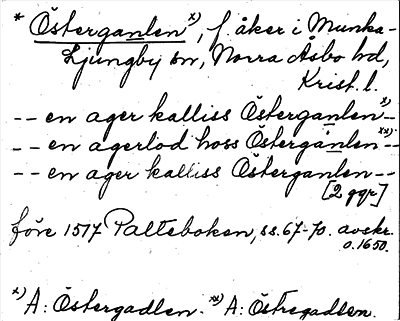 * Österganlen x), f. åker i Munka-
Ljungby sn, Norra Åsbo hd,
Krist. l.
-- en ager kalliss Österganlen x)--
-- en agerlod hoss Östergånlen xx)--
-- en ager kalliss Österganlen --
[2 ggr]
före 1517 Palteboken, ss. 67-70. avskr.
o. 1650.
x) A: Östergadlen. xx) A: Östregadlem.